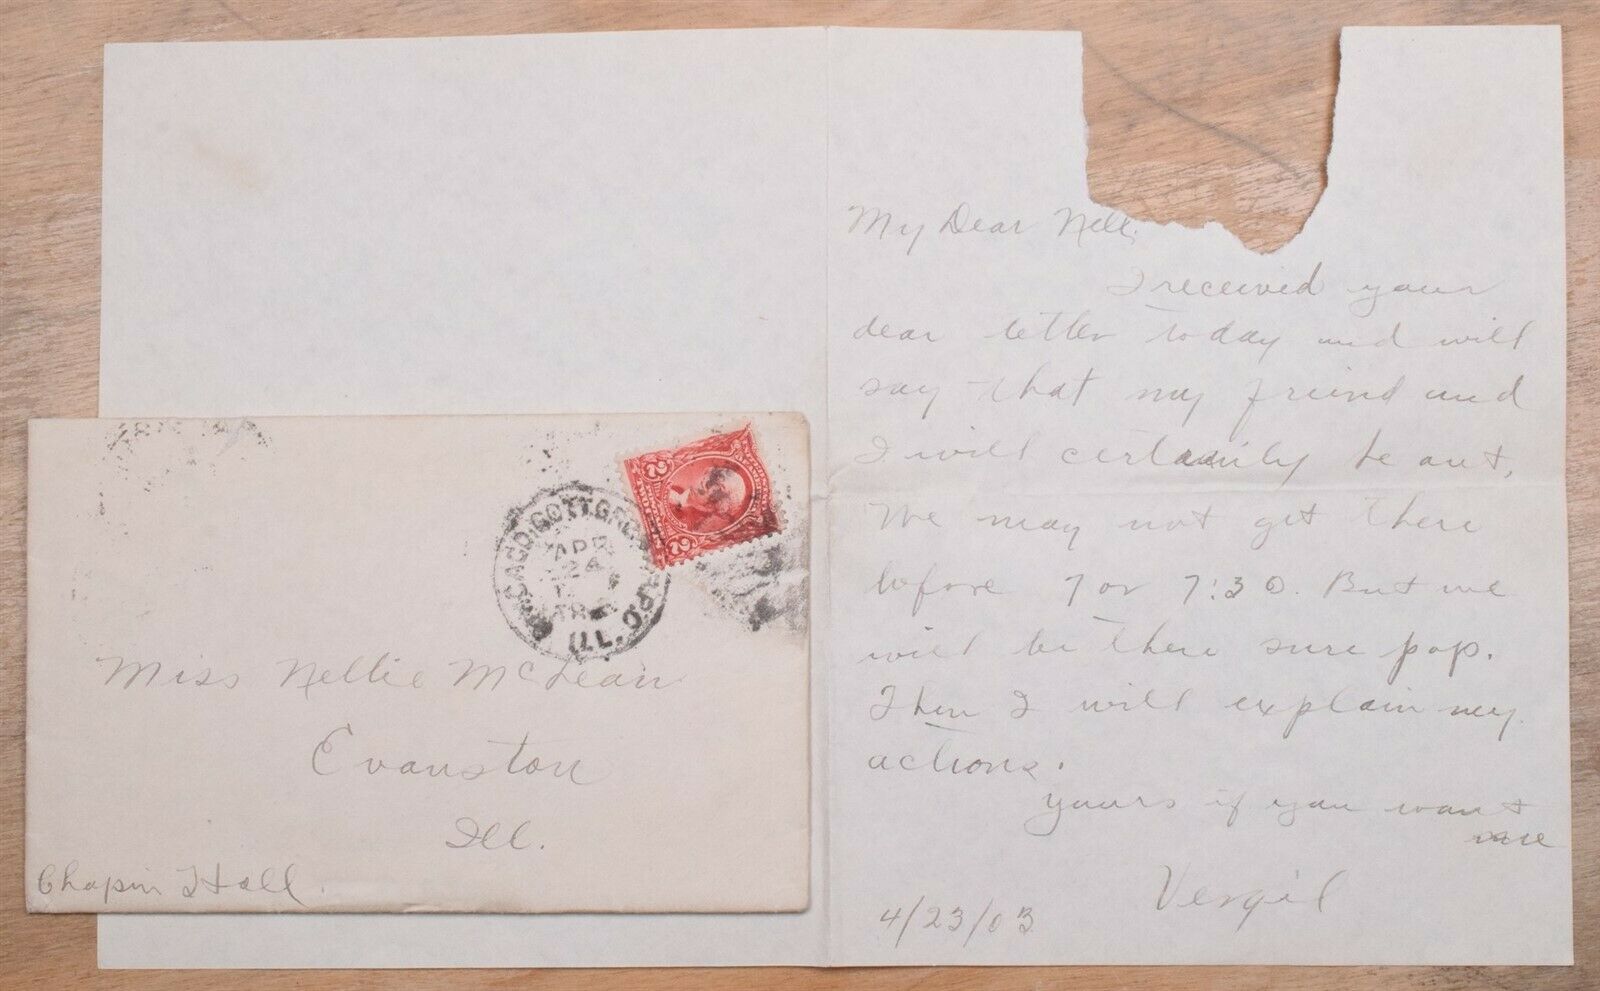 My Dear Nell.
I received your
dear letter today and will
say that my freind and
I will certainly be out.
We may not get there
before 7 or 7:30. But we
will be there sure pop.
Then I will explain my
actions.
yours if you want
me
Vergil
4/23/03
2
2
COTT.GR
R.P.O.
APR
24
TR
ILL.
Miss Nellie McLean
Evanston
Ill.
Chapin Hall.